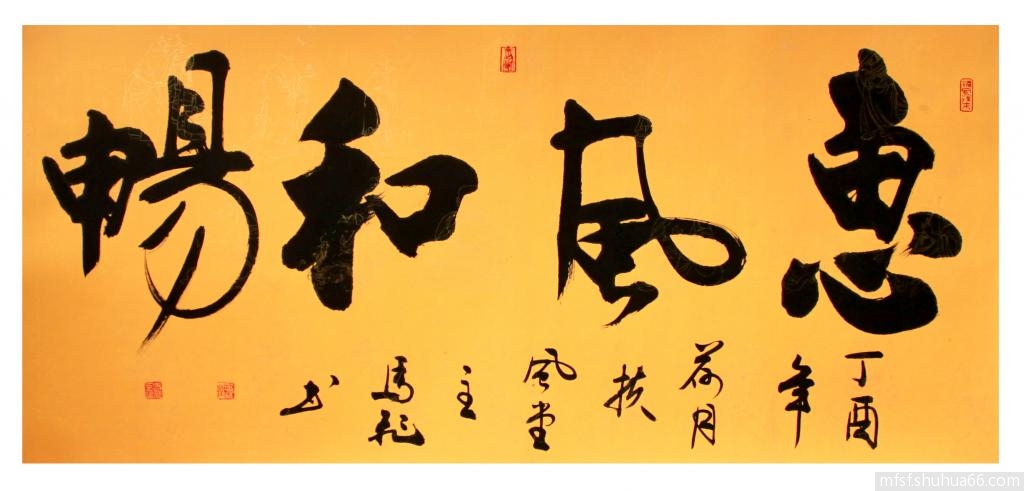 惠風和暢
丁酉
年
荷月
扶
風堂
主
馬
书
mfsf.shuhua66.com